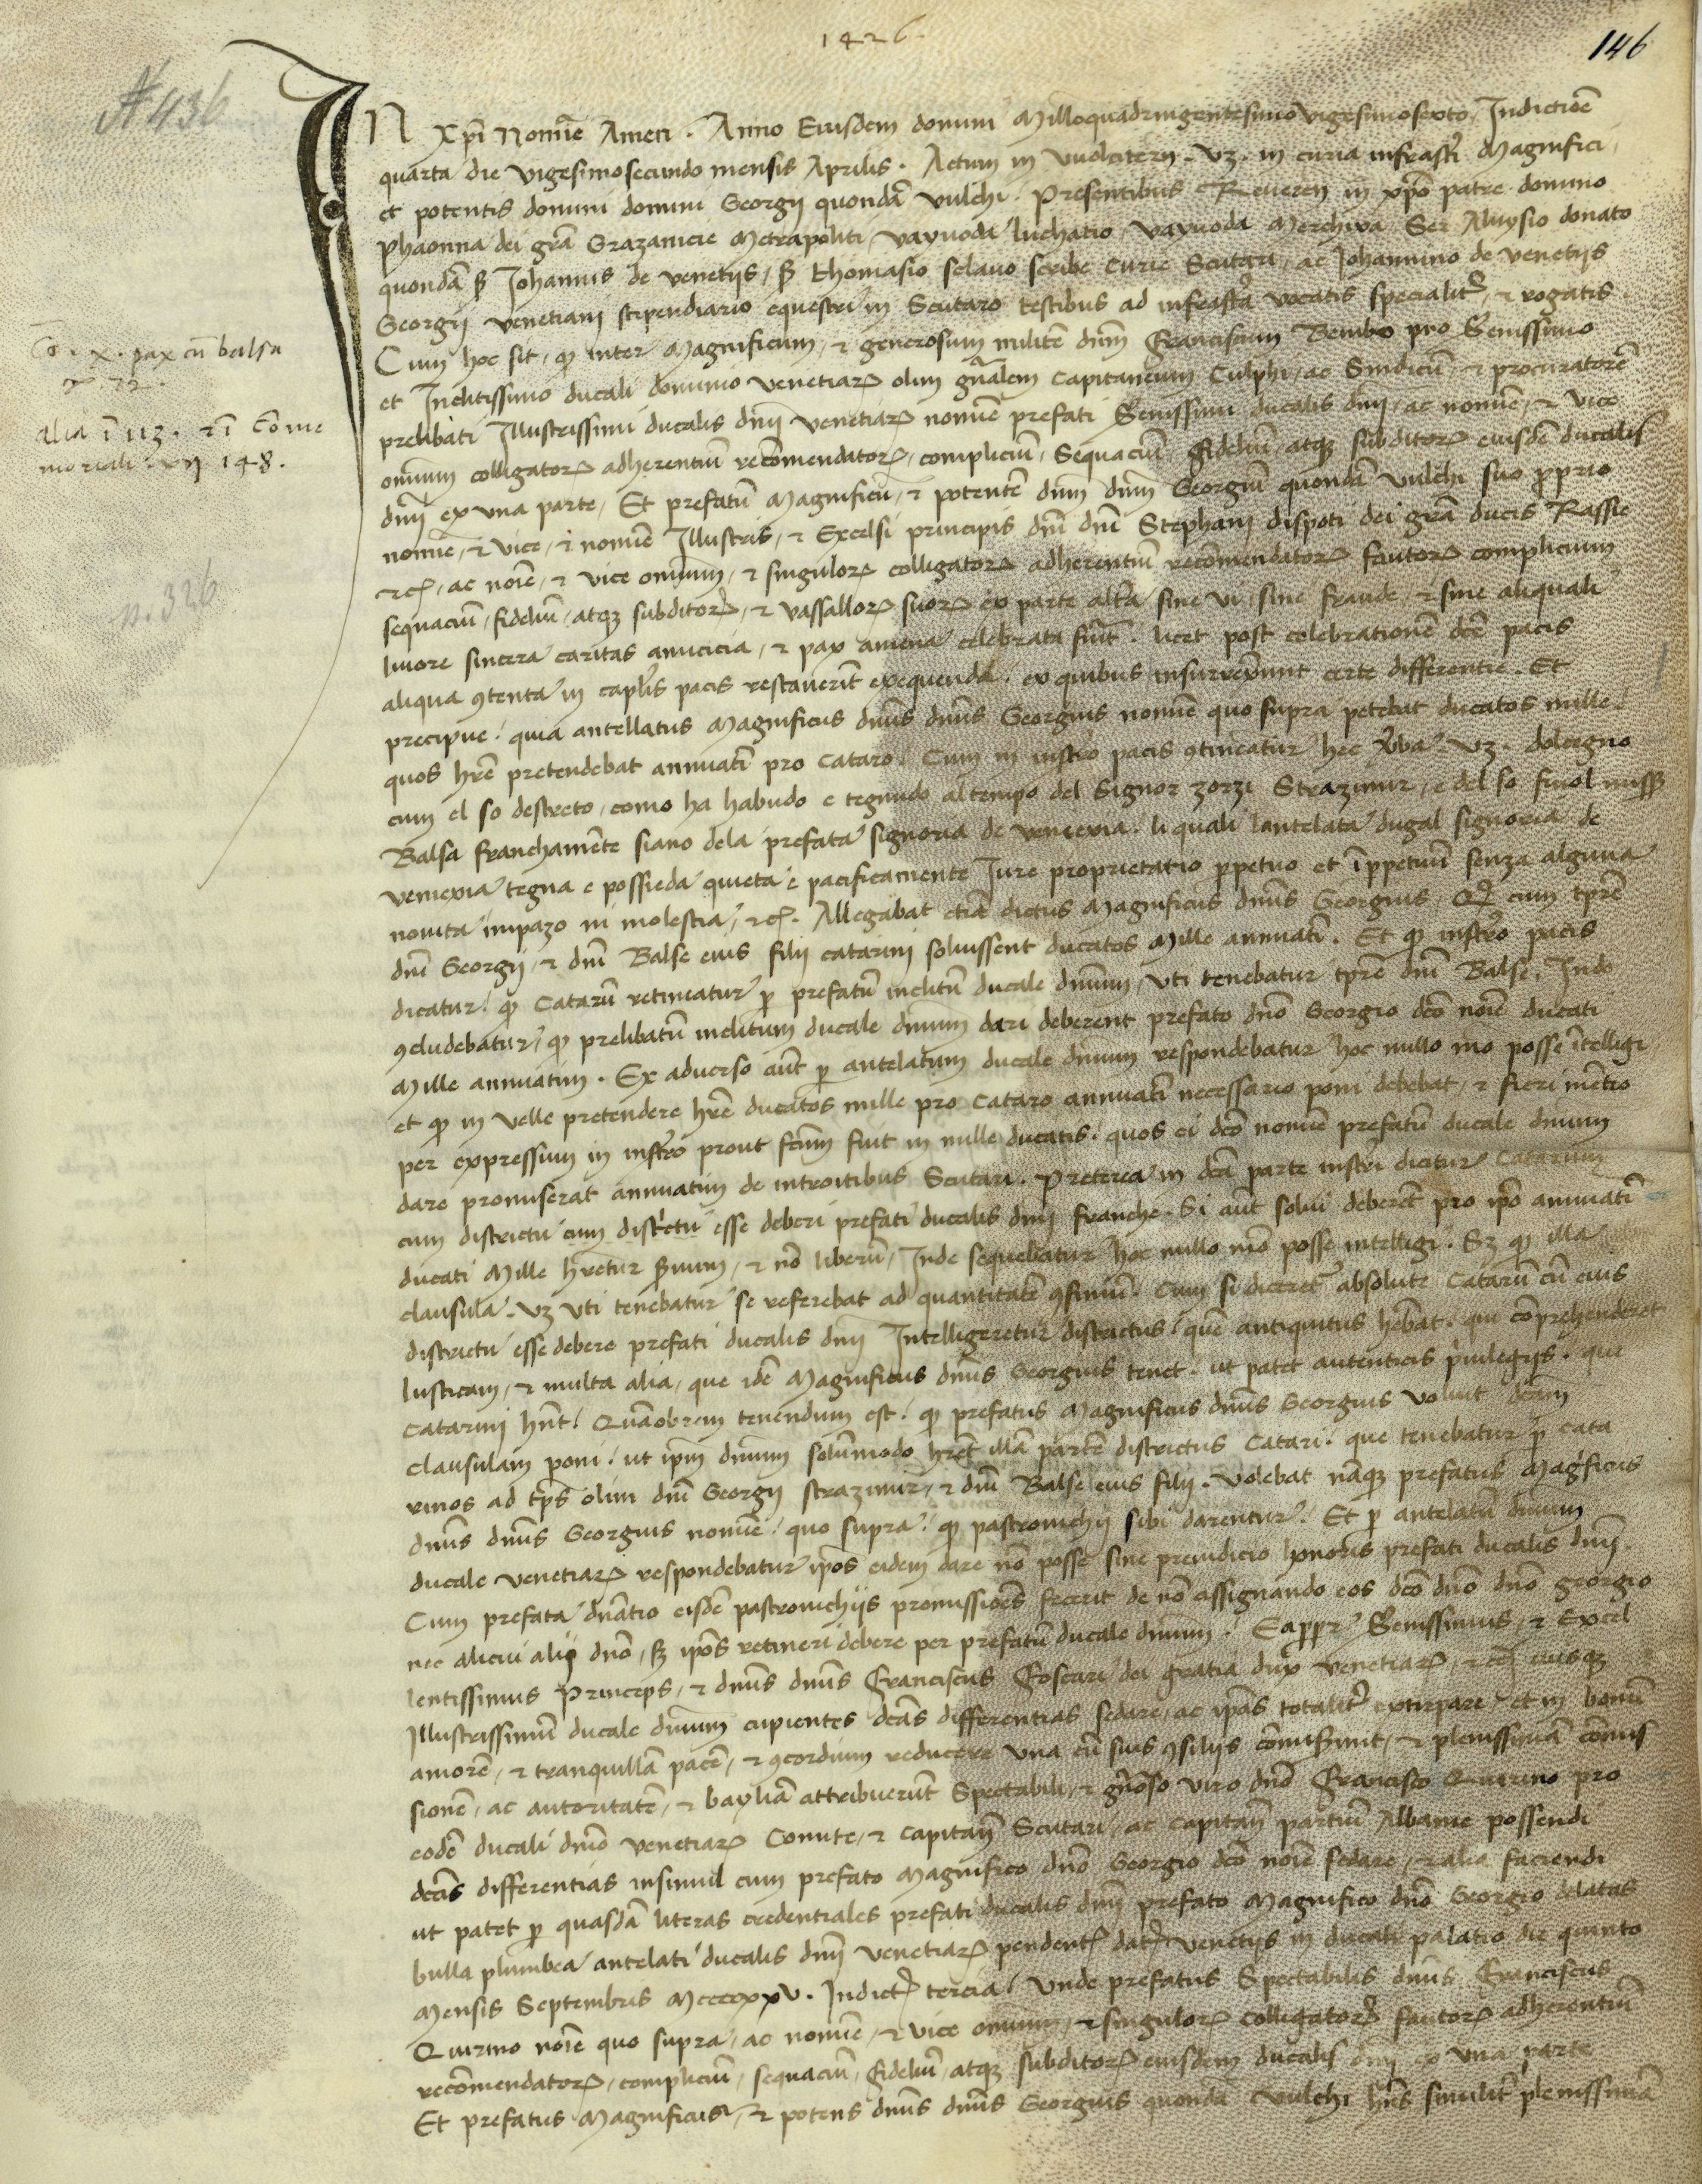 1426
146
A 436
IN Xpi Nomine Amen . Anno Eiusdem domini Millo quadringentesimo vigesimosexto, Indictioē
quarta die vigesimosecundo mensis Aprilis . Actum in vuolcitern . vz . in curia infrascti Magnifici,
et potentis domini domini Georgij quondā vulchi . Presentibus Reueren in xpo patre domino
phaonna dei grā Grazanicie Metrapoliti, vayuoda luchatio, vayuoda Merchixa Ser Aluysio donato
quondā ß Johannis de venetijs, ß thomasio sclauo scriba curie Scutari, ac Johannino de venetijs
Georgij venetiani stipendiario equestri in Scutaro testibus ad infrascta vocatis specialitr, & rogatis
Cum hoc sit, qp inter Magnificum, & generosum militē dnm Franciscum Bembo pro Sēnissimo
et Inclitissimo ducali dominio venetiarꝝ olim gnālem Capitaneum Culphi, ac Sindicū, & procuratorē
prelibati Illustrissimi ducalis dnij venetiarꝝ nomīe prefati Sēnissimi ducalis dnij, ac nomīe, & vice
omnium colligatorꝝ adherentiū recōmendatorꝝ, compliciū, Sequaciū fideliū, atqꝫ subditorꝝ eiusdē ducalis
dnij ex vna parte, Et prefatū Magnificū, & potentē dnm dnm Georgiū quondā vulchi suo proprio
nomīe, & vice, & nomīe Illustris, & Excelsi principis dni dni Stephani dispoti dei grā ducis Rassie
&c, ac noīe, & vice omnium, & singulorꝝ colligatorꝝ adherentiū recōmendatorꝝ fautorꝝ complicium
sequaciū, fideliū, atqꝫ subditorꝝ, & vassallorꝝ suorꝝ ex parte altā sine vi, sine fraude, & sine aliquali
liuore sincera caritas amicicia, & pax amena celebrata fuit . licet post celebrationē dcē pacis
aliqua ꝯtenta in caplis pacis restauerīt exequenda, ex quibus insurrexerunt certe differentie . Et
precipue, quia antellatus Magnificus dnus dnus Georgius nomīe quo supra petebat ducatos mille
quos hrē pretendebat annuatī pro Cataro, Cum in instro pacis ꝯtineatur hec vba vz . dolcigno
cum el so destreto, como ha habudo e tegnudo al tempo del Signor zorzi Strazimir, e del so fiuol missꝫ
Balsa franchamēte siano dela prefata signoria de veniexia . li quali lantelata dugal signoria de
veniexia tegna e possieda quieta e pacificamente Iure proprietatio ppetuo et īppetuū senza alguna
nouita impazo ni molestia, &c . Allegabat etiā dictus Magnificus dnus Georgius, Qd cum tprē
dni Georgij, & dni Balse eius filij catarini soluissent ducatos Mille annuatī . Et qp instro pacis
dicatur, qp Catarū retineatur p prefatū inclitū ducale dnium, vti tenebatur tprē dni Balse . Inde
ꝯcludebatur, qp prelibatū inclitum ducale dnium dari deberent prefato dno Georgio dco noīe ducati
Mille annuatim . Ex aduerso aūt p antelatum ducale dnium respondebatur hoc nullo mo posse ītelligi,
et qp in velle pretendere hrē ducatos mille pro Cataro annuatī necessario poni debebat, & fieri mētio
per expressum in instro prout fctum fuit in mille ducatis, quos ei dco nomīe prefatū ducale dnium
dare promiserat annuatim de introitibus Scutari . Preterea in dca parte instri dicitur Catarum
cum districtu cum districtu esse deberi prefati ducalis dnij franche . Si aūt solui deberēt pro ipo annuatī
ducati Mille hretur ßuum, & nō liberū, Inde sequebatur hoc nullo mō posse intelligi . Sꝫ qp illa
clausula . vz vti tenebatur se referebat ad quantitatē ꝯfiniū . Cum si diceretr absolute Catarū cū eius
districtu esse debere prefati ducalis dnij Intelligeretur districtus, quē antiquitus hēbat, qui cōprehenderet
lusticam, & multa alia, que idē Magnificus dnus Georgius tenet . ut patet autenticis priuilegijs . que
Catarini hnt, Quāobrem tenendum est, qp prefatus Magnificus dnus Georgius voluit dcam
clausulam poni, ut ipm dnium solūmodo hret illā partē districtus Catari, que tenebatur p Cata
rinos ad tps olim dni Georgij strazimir, & dni Balse eius filij . Volebat nāqꝫ prefatus Magficus
dnus dnus Georgius nomīe, quo supra, qp pastrouichij sibi darentur . Et p antelatū dnium
ducale venetiarꝝ respondebatur ipos eidem dare nō posse sine preiudicio honoris prefati ducalis dnij .
Cum prefata dnatio eisdē pastrouichijs promissiōes fecerit de nō assignando eos dco dno dno georgio
nec alicui alij dno, sꝫ ipos retineri debere per prefatū ducale dnium . Eappr Sēnissimus, & Excel
lentissimus Princeps, & dnus dnus Franciscus Foscari dei gratia dux venetiarꝝ, & cet eiusqꝫ
Illustrissimū ducale dnium cupientes dcas differentias sedare, ac ipas totalitr extirpare, et in bonū
amorē, & tranquillā pacē, & ꝯcordium reducere vna cū suis ꝯsilijs cōmiserunt, & plenissimā cōmis
sionē, ac autoritatē, & bayliā attribuerūt Spectabili, & gnoso viro dno Francisco Quirino pro
eodē ducali dnio venetiarꝝ Comite, & capitan̄ Scutari, ac capitan̄ partiū Albanie possendi
dcas differentias insimul cum prefato Magnifico dno Georgio dco noīe sedare, & alia faciendi
ut patet p quasdā literas credentiales prefati ducalis dnij prefato Magnifico dno Georgio delatas
bulla plumbea antelati ducalis dnij venetiarꝝ pendentē datꝝ venetijs in ducali palatio die quinto
Mensis Septembris Mccccxxv . Indictē tercia, Vnde prefatus Spectabilis dnus Franciscus
Quirino noīe quo supra, ac nomīe, & vice omnium, & singulorꝝ colligatorꝝ fautorꝝ adherentiū
recōmendatorꝝ, compliciū, sequaciū, fideliū, atqꝫ subditorꝝ eiusdem ducalis dnij ex vna parte
Et prefatus Magnificus, & potens dnus dnus Georgius quondā vulchi hns similitr plenissimā
Co . x . pax cū balsa
72 .
alia ī 113 . & ī Cōme
moriali . xij 148 .
n. 326